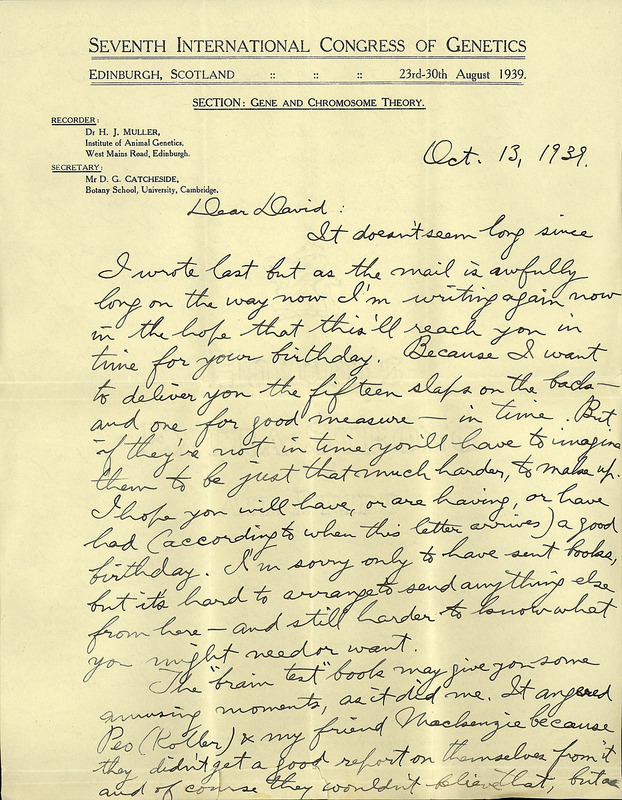 SEVENTH INTERNATIONAL CONGRESS OF GENETICS
EDINBURGH, SCOTLAND :: :: :: 23rd-30th August 1939.
SECTION: GENE AND CHROMOSOME THEORY.
RECORDER:
Dr H. J. MULLER,
Institute of Animal Genetics,
West Mains Road, Edinburgh.
SECRETARY:
Mr D. G. CATCHESIDE,
Botany School, University, Cambridge.
Oct. 13, 1939.
Dear David:
It doesn't seem long since
I wrote last but as the mail is awfully
long on the way now I'm writing again now
in the hope that this'll reach you in
time for your birthday. Because I want
to deliver you the fifteen slaps on the back—
and one for good measure — in time. But
if they're not in time you'll have to imagine
them to be just that much harder, to make up.
I hope you will have, or are having, or have
had (according to when this letter arrives) a good
birthday. I'm sorry only to have sent books,
but it's hard to arrange to send anything else
from here — and still harder to know what
you might need or want.
The "brain test" book may give you some
amusing moments, as it did me. It angered
Peo (Koller) & my friend Mackenzie because
they didn't get a good report on themselves from it
and of course they wouldn't believe that, but